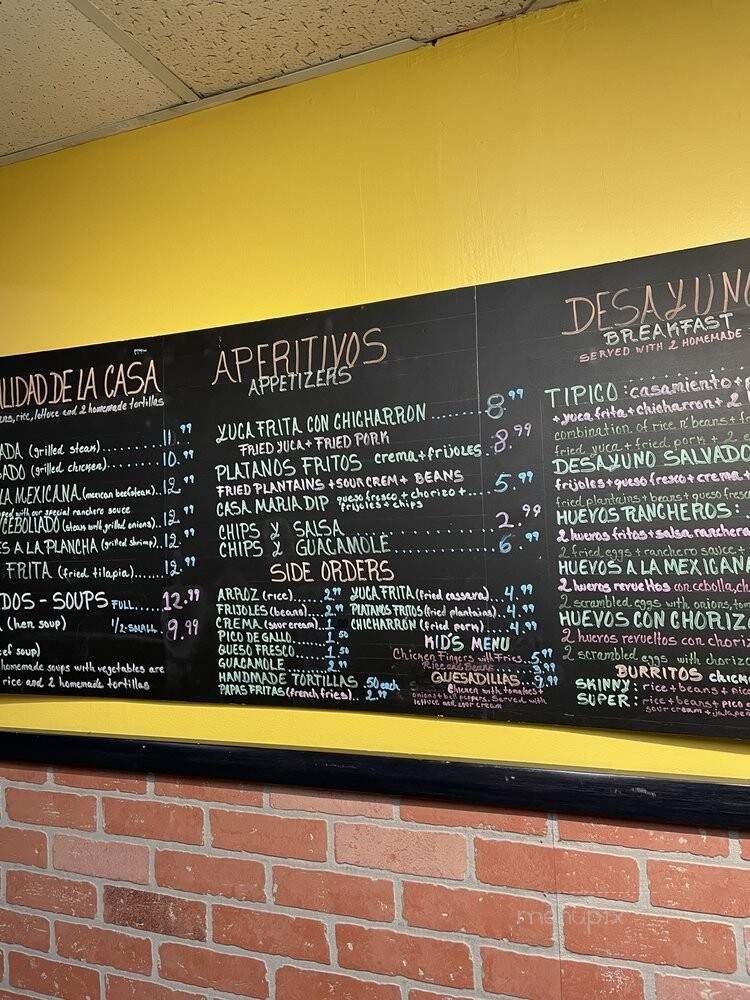 ALIDAD DE LA CASA
rice, lettuce and 2 homemade tortillas
ADA (grilled steak)......... 11.99
SADO (grilled chicken)......... 10.99
LA MEXICANA (mexican beefsteak).. 12.99
with our special ranchero sauce
CEBOLLADO (steak with grilled onions).. 12.99
ES A LA PLANCHA (grilled shrimp).. 12.99
FRITA (fried tilapia)...... 12.99
DOS - SOUPS FULL..... 12.99
(hen soup) 1/2-SMALL.. 9.99
eef soup)
homemade soups with vegetables are
rice and 2 homemade tortillas
APERITIVOS
APPETIZERS
YUCA FRITA CON CHICHARRON ......... 8.99
FRIED YUCA + FRIED PORK
PLATANOS FRITOS crema + frijoles... 8.99
FRIED PLANTAINS + SOUR CREM + BEANS
CASA MARIA DIP queso fresco + chorizo +... 5.99
frijoles + chips
CHIPS Y SALSA............ 2.99
CHIPS Y GUACAMOLE............ 6.99
SIDE ORDERS
ARROZ (rice)......... 2.99
FRIJOLES (beans)...... 2.99
CREMA (sour cream).. 1.00
PICO DE GALLO...... 1.50
QUESO FRESCO...... 1.50
GUACAMOLE........ 2.99
HANDMADE TORTILLAS .50 each
PAPAS FRITAS (french fries)... 2.99
YUCA FRITA (fried cassava)...... 4.99
PLATANOS FRITOS (fried plantains).. 4.99
CHICHARRON (fried pork)...... 4.99
KID'S MENU
Chicken Fingers with Fries.. 5.99
Rice and Beans
QUESADILLAS... 9.99
Chicken with tomatoes +
onions + bell peppers. Served with
lettuce and sour cream
DESAYUNO
BREAKFAST
SERVED WITH 2 HOMEMADE
TIPICO: casamiento +
+ yuca frita + chicharron + 2
combination of rice n' beans +
fried yuca + fried pork + 2
DESAYUNO SALVADO
frijoles + queso fresco + crema +
fried plantains + beans + queso fres
HUEVOS RANCHEROS:
2 huevos fritos + salsa ranchera
2 fried eggs + ranchero sauce +
HUEVOS A LA MEXICANA
2 huevos revueltos con cebolla, ch
2 scrambled eggs with onions, tom
HUEVOS CON CHORIZO
2 huevos revueltos con choriz
2 scrambled eggs with chorizo
BURRITOS CHICKE
SKINNY: rice + beans + pico
SUPER: rice + beans + pico
sour cream + jalape
menupix